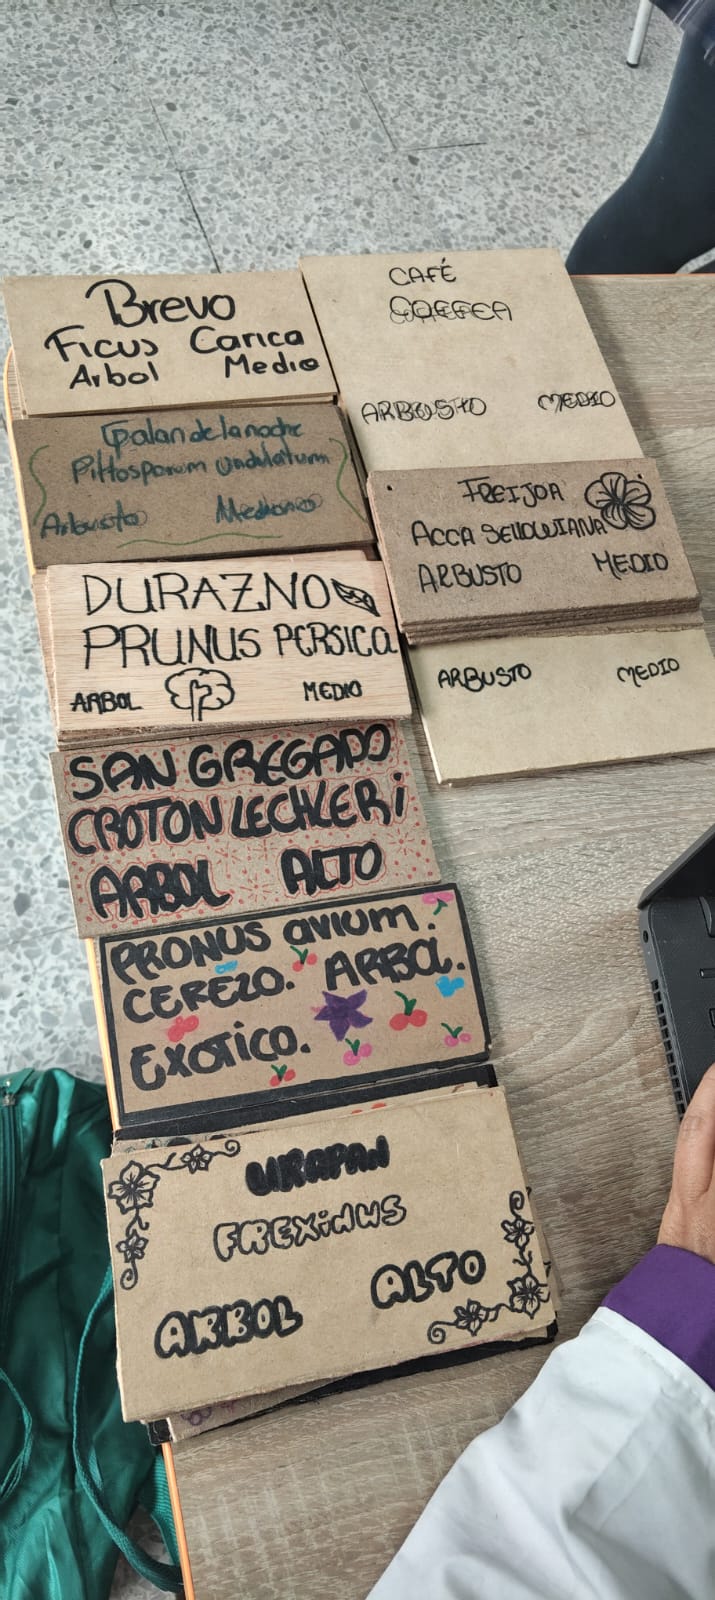 Brevo
Ficus Carica
Arbol Medio
Galan de la noche
Pittosporum undulatum
Arbusto Mediano
DURAZNO
PRUNUS PERSICA
ARBOL MEDIO
SAN GREGADO
CROTON LECHLERi
ARBOL ALTO
PRONUS avium.
CEREZO. ARBOL.
EXOTICO.
URAPAN
FREXiNUS
ARBOL ALTO
CAFÉ
COFFEA
ARBUSTO MEDIO
FREIJOA
ACCA SELLOWIANA
ARBUSTO MEDIO
ARBUSTO MEDIO